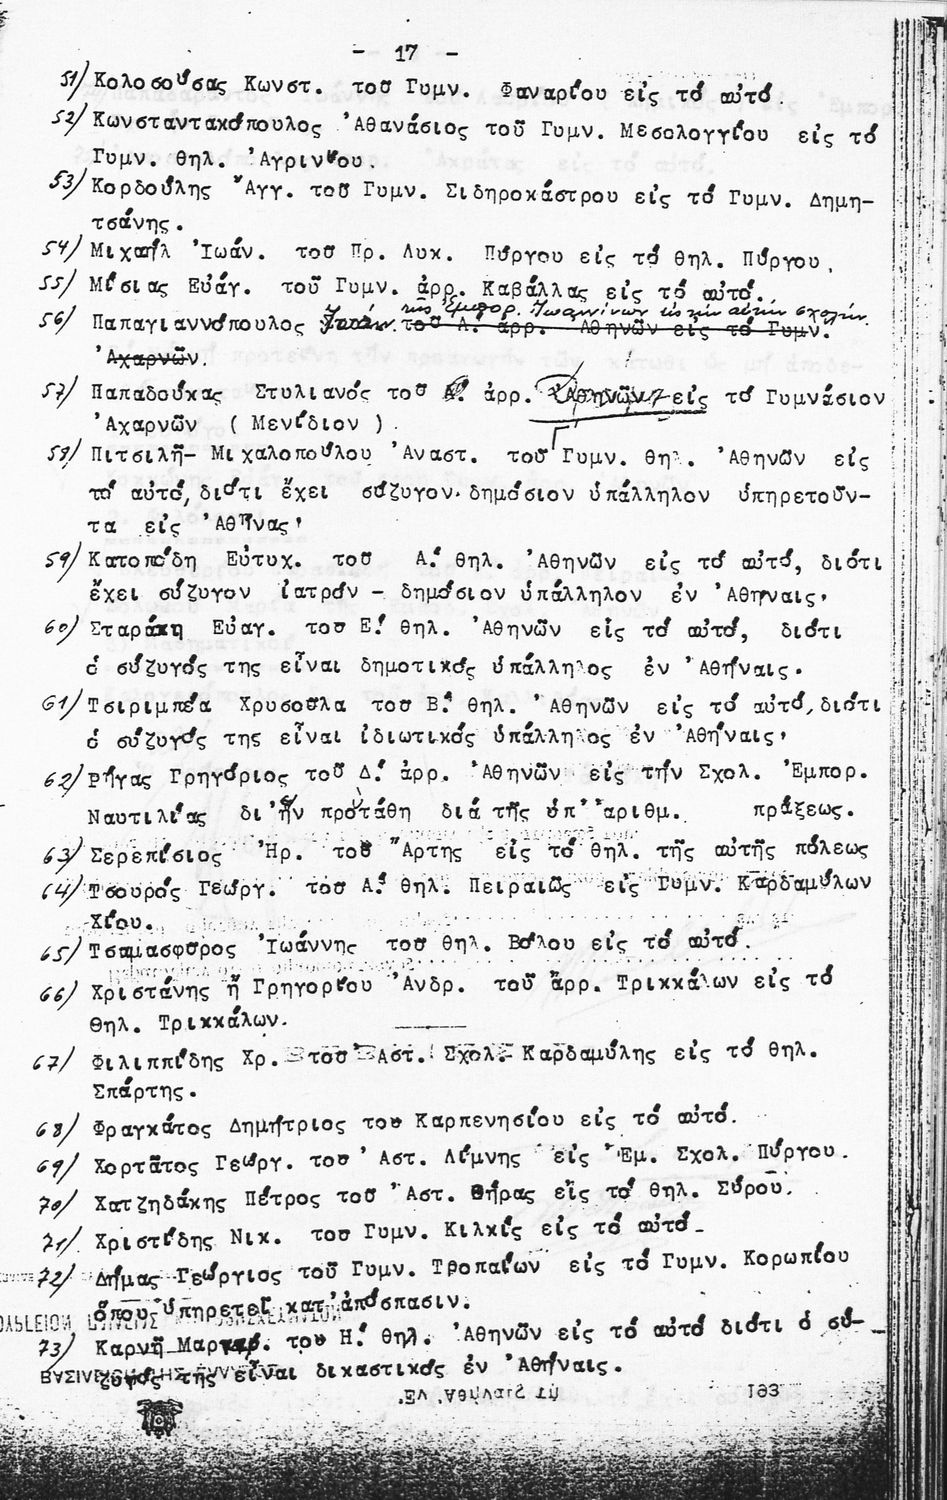 - 17 -
51) Κολοσούσας Κωνστ. τοῦ Γυμν. Φαναρίου εἰς τό αὐτό.
52) Κωνσταντακόπουλος Ἀθανάσιος τοῦ Γυμν. Μεσολογγίου εἰς τό
Γυμν. θηλ. Ἀγρινίου.
53) Κορδούλης Ἄγγ. τοῦ Γυμν. Σιδηροκάστρου εἰς τό Γυμν. Δημη-
τσάνης.
54) Μιχαήλ Ἰωάν. τοῦ Πρ. Λυκ. Πύργου εἰς τό θηλ. Πύργου.
55) Μίσιας Εὐάγ. τοῦ Γυμν. ἀρρ. Καβάλλας εἰς τό αὐτό.
τῆς Ἐμπορ. Ἰωαννίνων εἰς τήν αὐτήν σχολήν
56) Παπαγιαννόπουλος τοῦ Α. ἀρρ. Ἀθηνῶν εἰς τό Γυμν.
Ἀχαρνῶν.
57) Παπαδούκας Στυλιανός τοῦ ἀρρ. Ἀθηνῶν εἰς τό Γυμνάσιον
Ἀχαρνῶν ( Μενίδιον ).
58) Πιτσιλῆ- Μιχαλοπούλου Ἀναστ. τοῦ Γυμν. θηλ. Ἀθηνῶν εἰς
τό αὐτό, διότι ἔχει σύζυγον δημόσιον ὑπάλληλον ὑπηρετοῦν-
τα εἰς Ἀθήνας.
59) Κατοπόδη Εὐτυχ. τοῦ Α! θηλ. Ἀθηνῶν εἰς τό αὐτό, διότι
ἔχει σύζυγον ἰατρόν - δημόσιον ὑπάλληλον ἐν Ἀθήναις.
60) Σταράκη Εὐαγ. τοῦ Ε! θηλ. Ἀθηνῶν εἰς τό αὐτό, διότι
ὁ σύζυγός της εἶναι δημοτικός ὑπάλληλος ἐν Ἀθήναις.
61) Τσιριμπέα Χρυσούλα τοῦ Β! θηλ. Ἀθηνῶν εἰς τό αὐτό, διότι
ὁ σύζυγός της εἶναι ἰδιωτικός ὑπάλληλος ἐν Ἀθήναις.
62) Ρήγας Γρηγόριος τοῦ Δ! ἀρρ. Ἀθηνῶν εἰς τήν Σχολ. Ἐμπορ.
Ναυτιλίας δι' ἥν προτάθη διά τῆς ὑπ' ἀριθμ. πράξεως.
63) Σερεπίσιος Ἠρ. τοῦ Ἄρτης εἰς τό θηλ. τῆς αὐτῆς πόλεως
64) Τσουρός Γεώργ. τοῦ Α! θηλ. Πειραιῶς εἰς Γυμν. Καρδαμύλων
Χίου.
65) Τσαμασφυρος Ἰωάννης τοῦ θηλ. Βόλου εἰς τό αὐτό.
66) Χριστάνης ἤ Γρηγορίου Ἀνδρ. τοῦ ἄρρ. Τρικκάλων εἰς τό
Θηλ. Τρικκάλων.
67) Φιλιππίδης Χρ. τοῦ Ἀστ. Σχολ. Καρδαμύλης εἰς τό θηλ.
Σπάρτης.
68) Φραγκάτος Δημήτριος τοῦ Καρπενησίου εἰς τό αὐτό.
69) Χορτᾶτος Γεώργ. τοῦ Ἀστ. Λίμνης εἰς Ἐμ. Σχολ. Πύργου.
70) Χατζηδάκης Πέτρος τοῦ Ἀστ. Θήρας εἰς τό θηλ. Σύρου.
71) Χριστίδης Νικ. τοῦ Γυμν. Κιλκίς εἰς τό αὐτό.
72) Δήμας Γεώργιος τοῦ Γυμν. Τροπαίων εἰς τό Γυμν. Κορωπίου
ὅπου ὑπηρετεῖ κατ' ἀπόσπασιν.
73) Καρνῆ Μαργαρ. τοῦ Η! θηλ. Ἀθηνῶν εἰς τό αὐτό διότι ὁ σύ-
ζυγός της εἶναι δικαστικός ἐν Ἀθήναις.